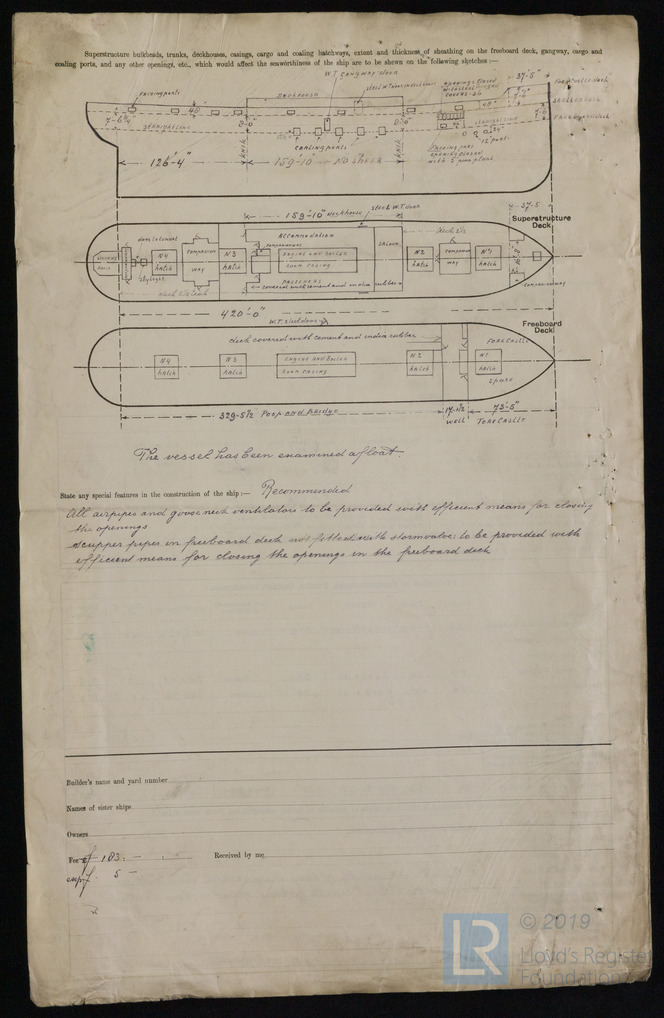 Superstructure bulkheads, trunks, deckhouses, casings, cargo and coaling hatchways, extent and thickness of sheathing on the freeboard deck, gangway, cargo and
coaling ports, and any other openings, etc., which would affect the seaworthiness of the ship are to be shewn on the following sketches :—
W.T. Gangway door
37'-5"
Freeing ports
Deckhouse
Coaling ports
126'-4"
159'-10"
No sheer
159'-10" Deckhouse
steel W.T. door
37-5
Superstructure
Deck
Accommodation
Saloon
N4
hatch
companion
way
N3
hatch
Engine and Boiler
room casing
N2
hatch
companion
way
N1
hatch
Passengers
skylight
covered with cement and india rubber
420'-0"
W.T. steel door
Freeboard
Deck
deck covered with cement and india rubber
Forecastle
N4
hatch
N3
hatch
Engine and Boiler
room casing
N2
hatch
N1
hatch
space
329-5 1/2 Poop and Bridge
17-1 1/2
well
73'-5"
Forecastle
The vessel has been examined afloat.
State any special features in the construction of the ship :— Recommended
All airpipes and gooseneck ventilators to be provided with efficient means for closing
the openings
scupper pipes on freeboard deck not fitted with stormvalve: to be provided with
efficient means for closing the openings in the freeboard deck
Builder's name and yard number
Names of sister ships
Owners
Fee f 103: —
Received by me,
exp f. 5 —
LR
© 2019
Lloyd's Register
Foundation